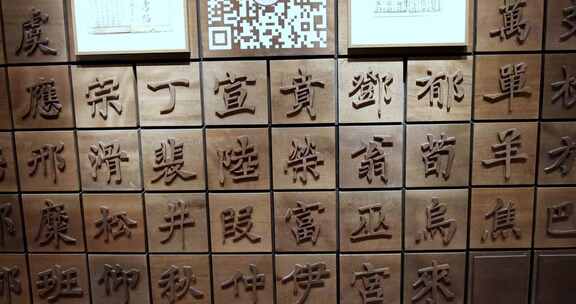 虞 萬 支
應 宗 丁 宣 賁 鄧 郁 單 杭
邢 滑 裴 陸 榮 翁 荀 羊 於
糜 松 井 段 富 巫 烏 焦 巴
班 仰 秋 仲 伊 宮 來